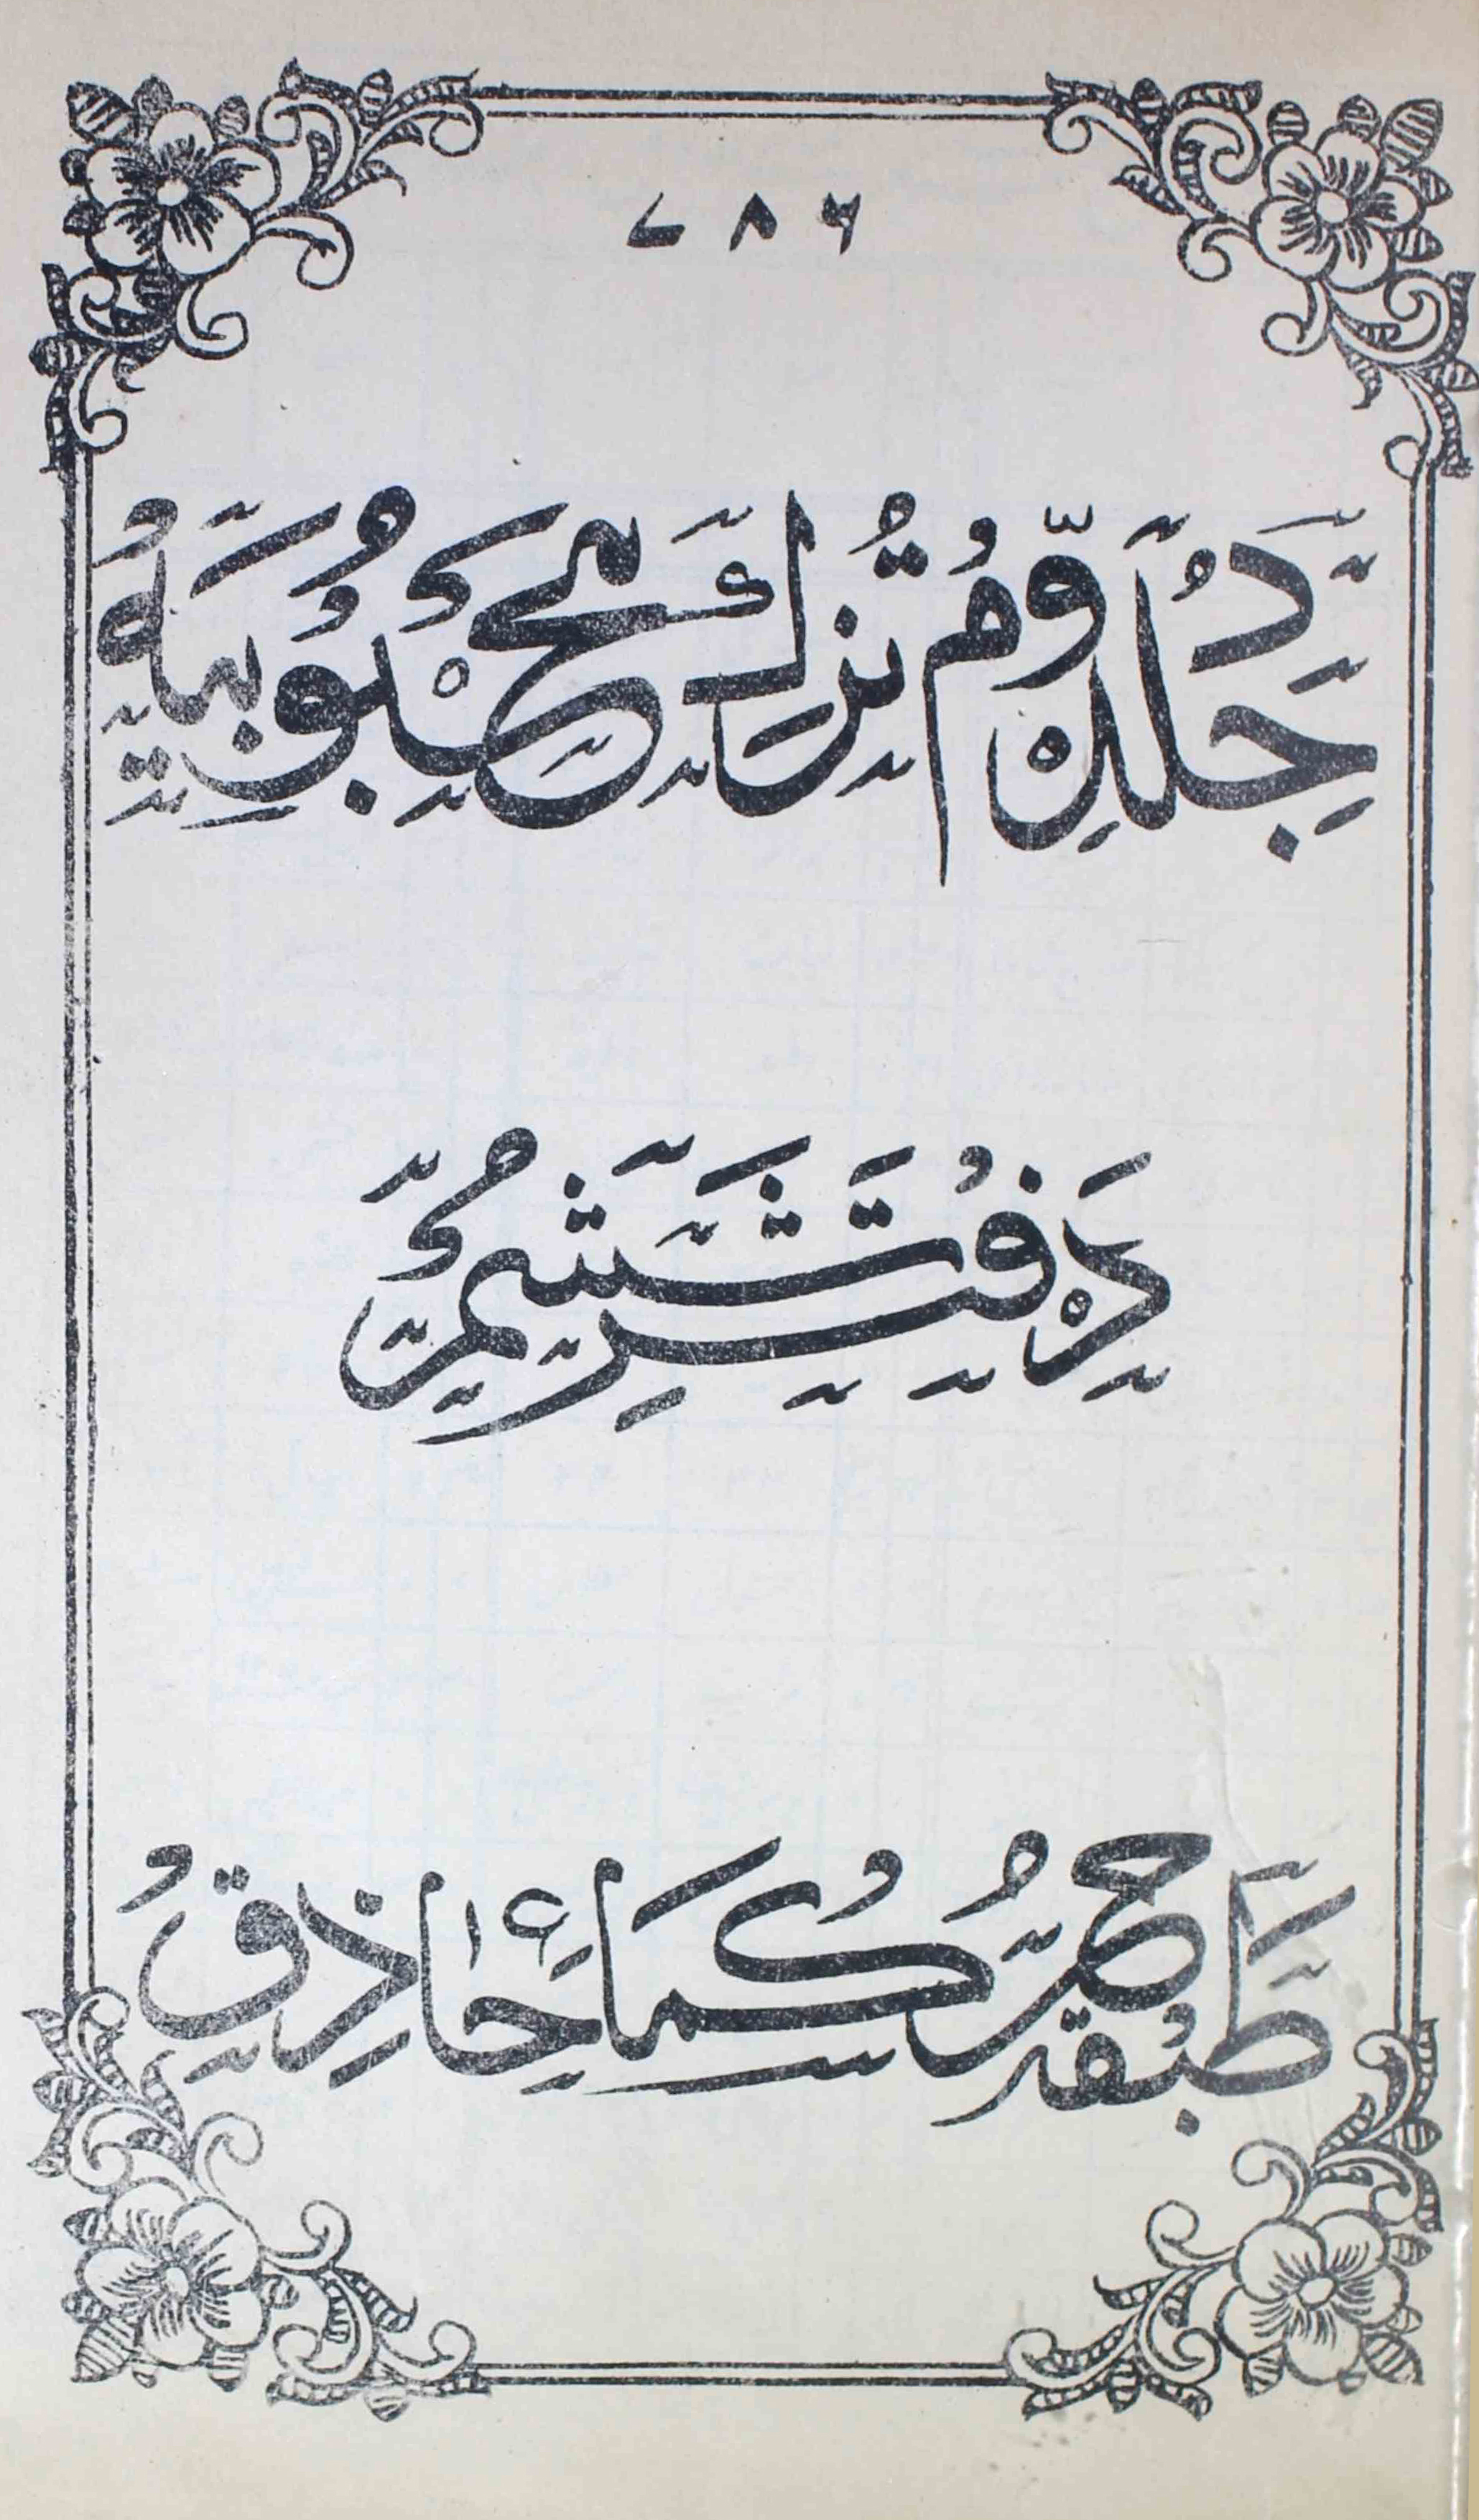 ۷۸۶
جلد دوم تزک محبوبیہ
دفتر ششم
طبقہ حکمائے حاذق